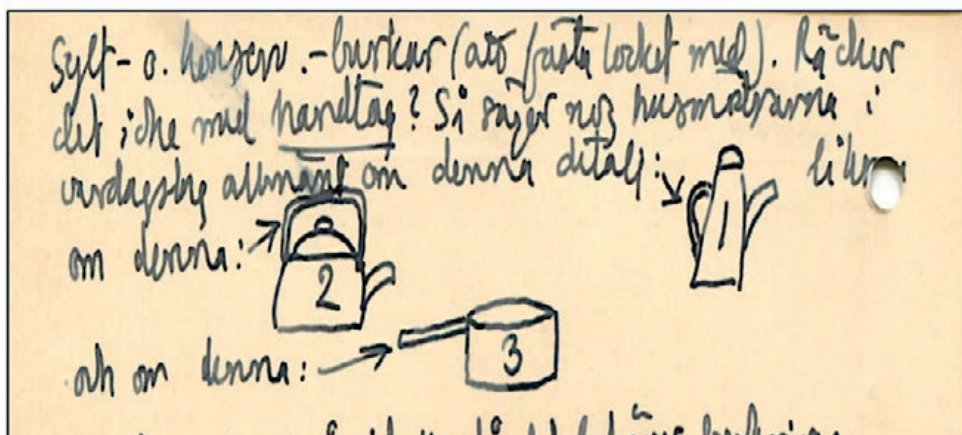 Sylt- o. konserv.-burkar (att fästa locket med). Räcker
det icke med handtag? Så säger nog husmödrarna i
vardagslag allmänt om denna detalj: liksom
1
om denna:
2
och om denna:
3